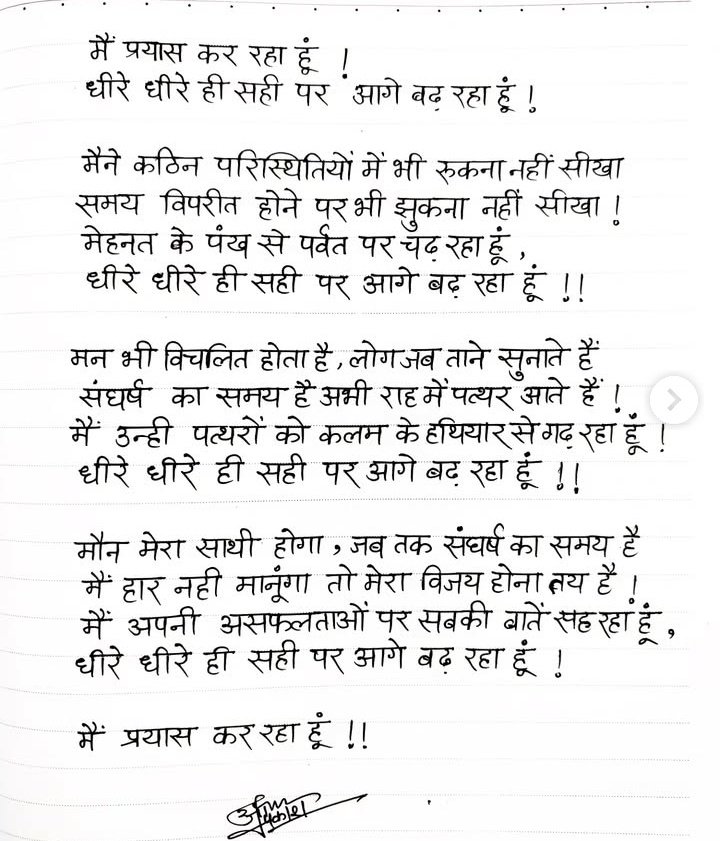 मैं प्रयास कर रहा हूं !
धीरे धीरे ही सही पर आगे बढ़ रहा हूं !
मैने कठिन परिस्थितियों में भी रुकना नहीं सीखा
समय विपरीत होने पर भी झुकना नहीं सीखा !
मेहनत के पंख से पर्वत पर चढ़ रहा हूं ,
धीरे धीरे ही सही पर आगे बढ़ रहा हूं !!
मन भी विचलित होता है , लोग जब ताने सुनाते हैं
संघर्ष का समय है अभी राह में पत्थर आते हैं !
मैं उन्ही पत्थरों को कलम के हथियार से गढ़ रहा हूं !
धीरे धीरे ही सही पर आगे बढ़ रहा हूं !!
मौन मेरा साथी होगा , जब तक संघर्ष का समय है
मैं हार नही मानूंगा तो मेरा विजय होना तय है !
मैं अपनी असफलताओं पर सबकी बातें सह रहा हूं ,
धीरे धीरे ही सही पर आगे बढ़ रहा हूं !
मैं प्रयास कर रहा हूं !!